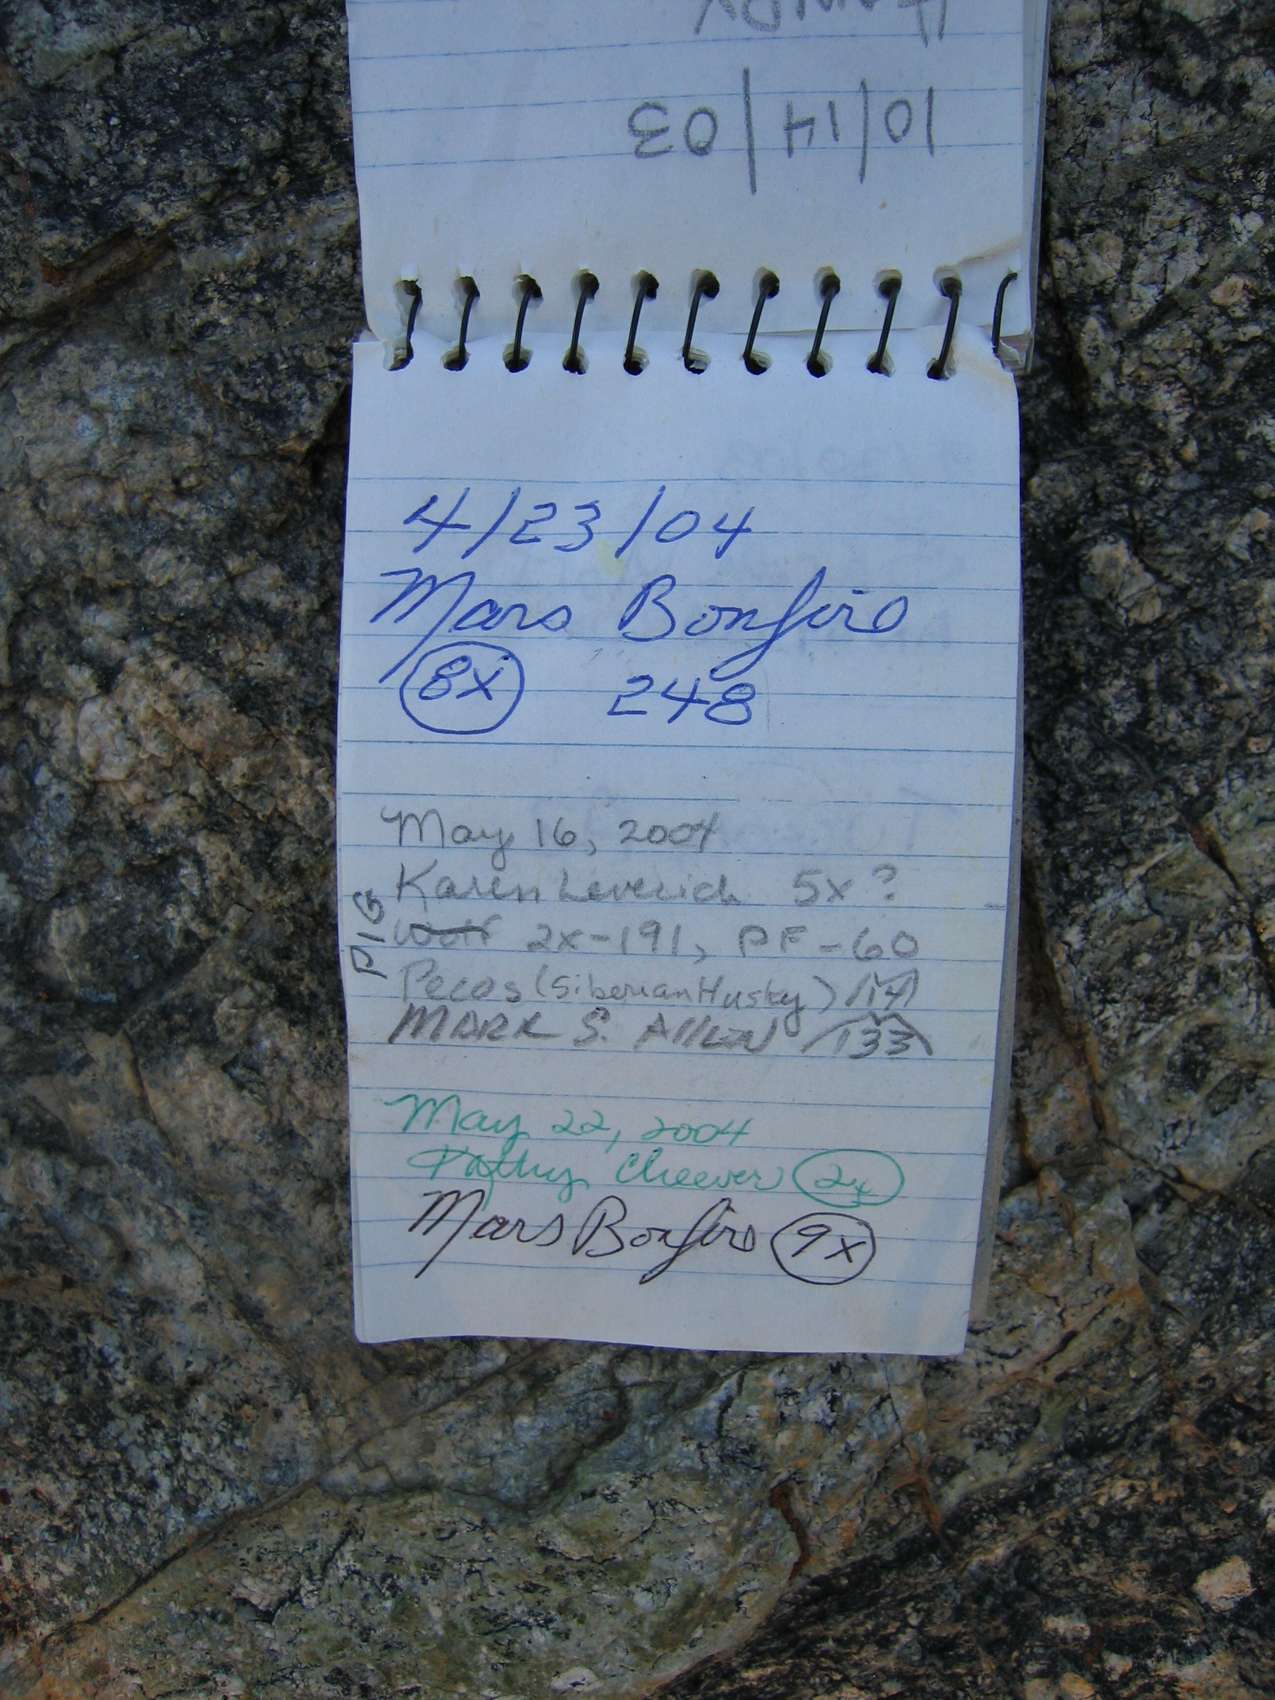 10/14/03
4/23/04
Mars Bonfire
8x 248
May 16, 2004
Karen Leverich 5x?
PIG
Woof 2x-191, PF-60
Pecos (Siberian Husky) 141
MARK S. AllEN 133
May 22, 2004
Kathy Cheever 2x
Mars Bonfire 9x